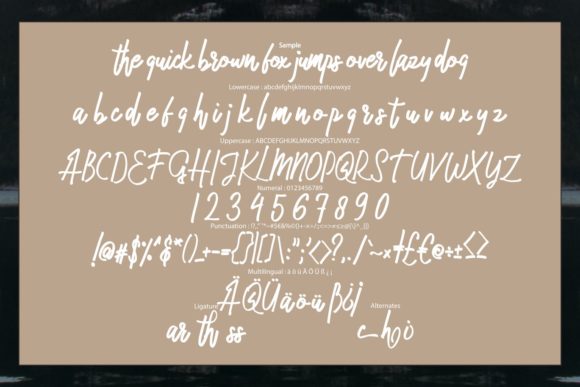 Sample
the quick brown fox jumps over lazy dog
Lowercase : abcdefghijklmnopqrstuvwxyz
abcdefghijklmnopqrstuvwxyz
Uppercase : ABCDEFGHIJKLMNOPQRSTUVWXYZ
ABCDEFGHIJKLMNOPQRSTUVWXYZ
Numeral : 0123456789
1234567890
!@#$%^&*()_-+={}|[]\:";'<>?,./`~×
Multilingual : ä ö ü Ä Ö Ü ß ¿ ¡
ÄÖÜäöüß¿¡
Ligature
Alternates
ar th ss